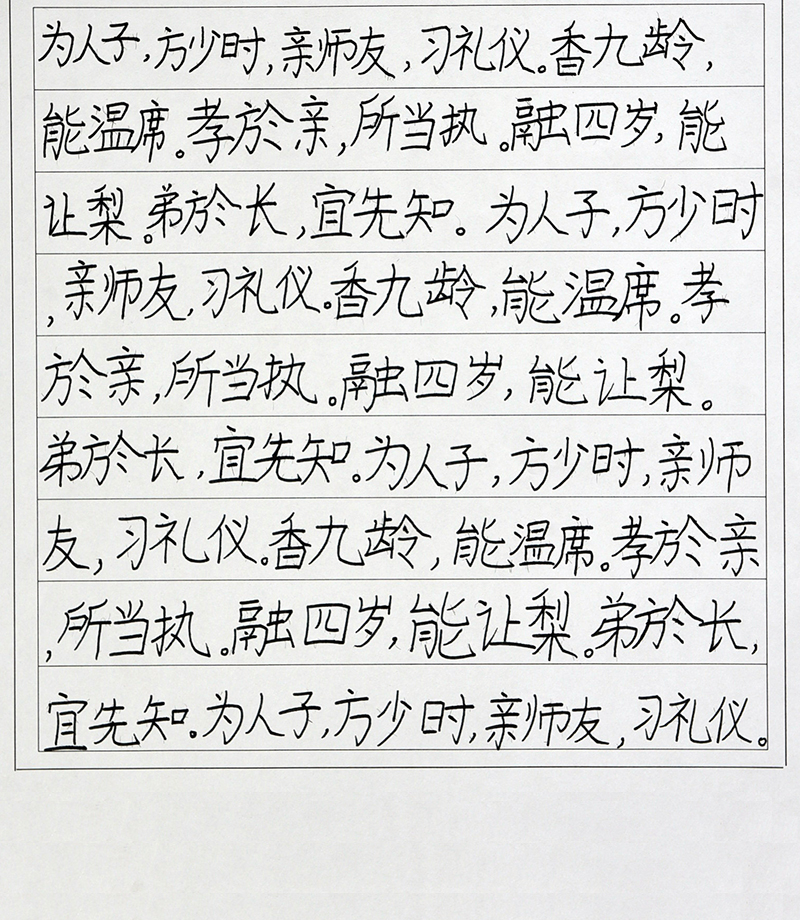 为人子,方少时,亲师友,习礼仪。香九龄,
能温席。孝於亲,所当执。融四岁,能
让梨。弟於长,宜先知。为人子,方少时
,亲师友,习礼仪。香九龄,能温席。孝
於亲,所当执。融四岁,能让梨。
弟於长,宜先知。为人子,方少时,亲师
友,习礼仪。香九龄,能温席。孝於亲
,所当执。融四岁,能让梨。弟於长,
宜先知。为人子,方少时,亲师友,习礼仪。